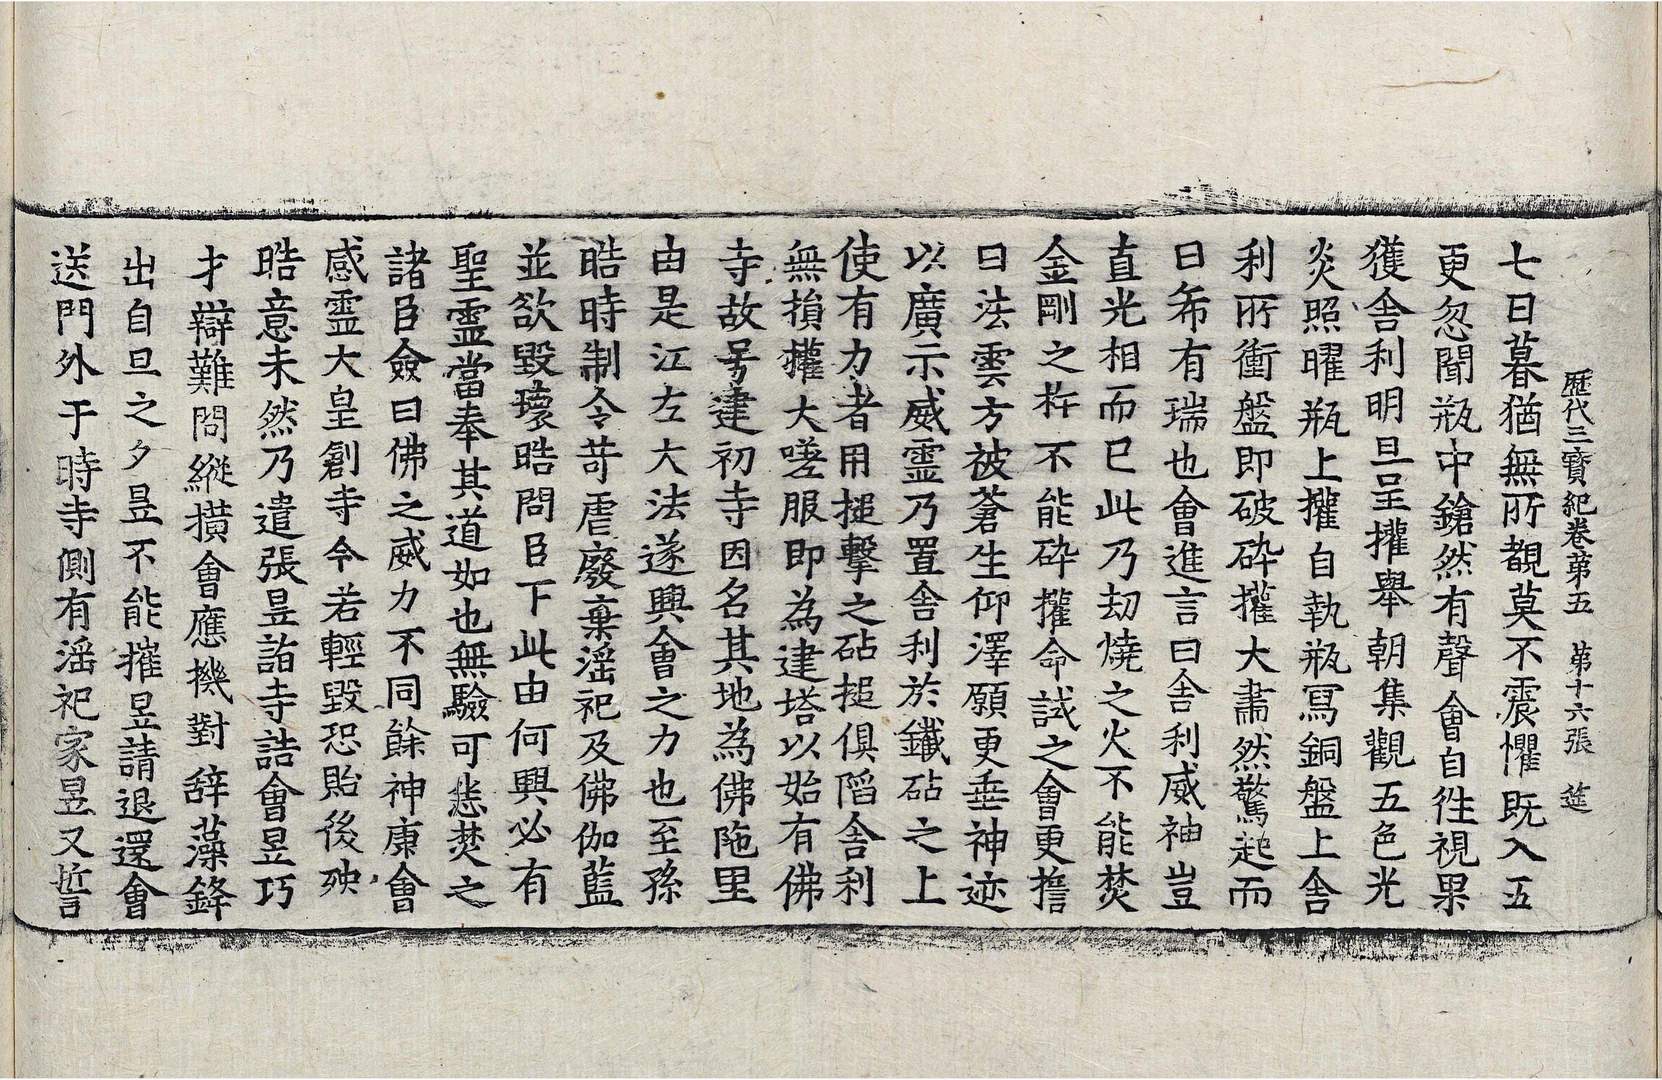 歷代三寶紀卷第五　第十六張　筵
七日暮猶無所覩莫不震懼既入五
更忽聞瓶中鎗然有聲會自往視果
獲舍利明旦呈權舉朝集觀五色光
炎照曜瓶上權自執瓶寫銅盤上舍
利所衝盤即破碎權大肅然驚起而
曰希有瑞也會進言曰舍利威神豈
直光相而已此乃劫燒之火不能焚
金剛之杵不能碎權命試之會更誓
曰法雲方被蒼生仰澤願更垂神迹
以廣示威靈乃置舍利於鐵砧之上
使有力者用搥擊之砧搥俱陷舍利
無損權大嗟服即為建塔以始有佛
寺故号建初寺因名其地為佛陁里
由是江左大法遂興會之力也至孫
晧時制令苛虐廢棄滛祀及佛伽藍
並欲毀壞晧問臣下此由何興必有
聖靈當奉其道如也無驗可悉焚之
諸臣僉曰佛之威力不同餘神康會
感靈大皇創寺今若輕毀恐貽後殃
晧意未然乃遣張昱詣寺詰會昱巧
才辯難問縱撗會應機對辞藻鋒
出自旦之夕昱不能摧昱請退還會
送門外于時寺側有滛祀家昱又誓